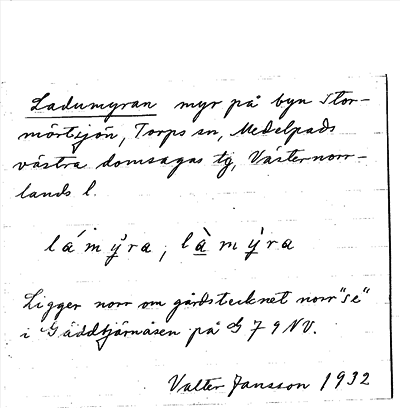 Ladumyran myr på byn Stor-
mörtsjön, Torps sn, Medelpads
västra domsagas tg, Västernorr-
lands l.
lám y̆ra, là mỳra
Ligger norr om gårdstecknet norr "se"
i Gäddtjärnåsen på G 79 NV.
Valter Jansson 1932